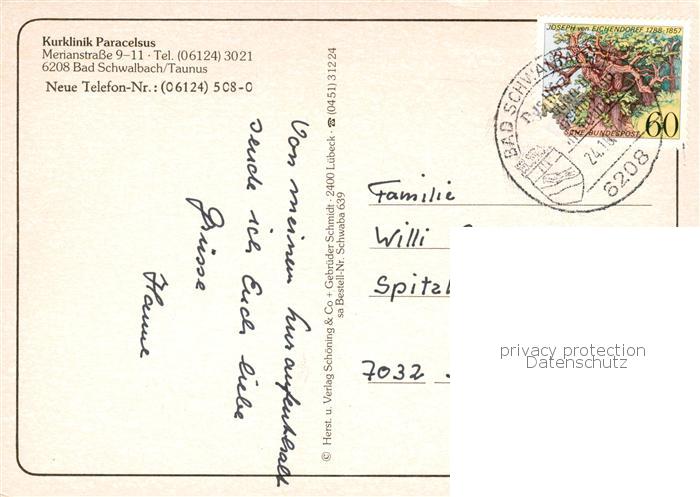 Kurklinik Paracelsus
Merianstraße 9–11 · Tel. (06124) 3021
6208 Bad Schwalbach/Taunus
Neue Telefon-Nr.: (06124) 508-0
Von meinem Kuraufenthalt
sende ich Euch liebe
Grüsse
Hanne
© Herst. u. Verlag Schöning & Co + Gebrüder Schmidt · 2400 Lübeck · ☎ (0451) 31224
sa Bestell-Nr. Schwaba 639
JOSEPH von EICHENDORFF 1788-1857
BUNDESPOST
60
BAD SCHWALBACH
24.10
6208
Familie
Willi
7032
privacy protection
Datenschutz